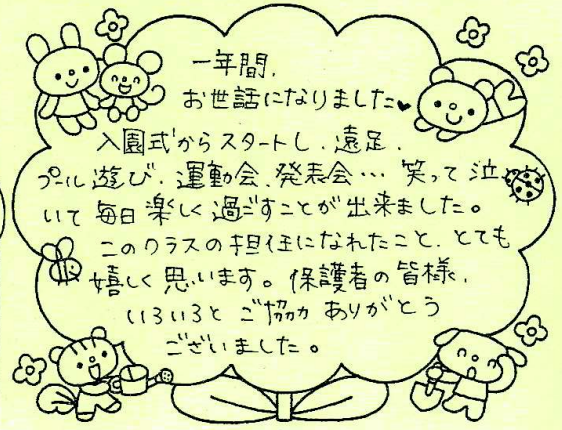 一年間、
お世話になりました♥
入園式からスタートし、遠足、
プール遊び、運動会、発表会… 笑って泣
いて毎日楽しく過ごすことが出来ました。
このクラスの担任になれたこと、とても
嬉しく思います。保護者の皆様、
いろいろとご協力ありがとう
ございました。